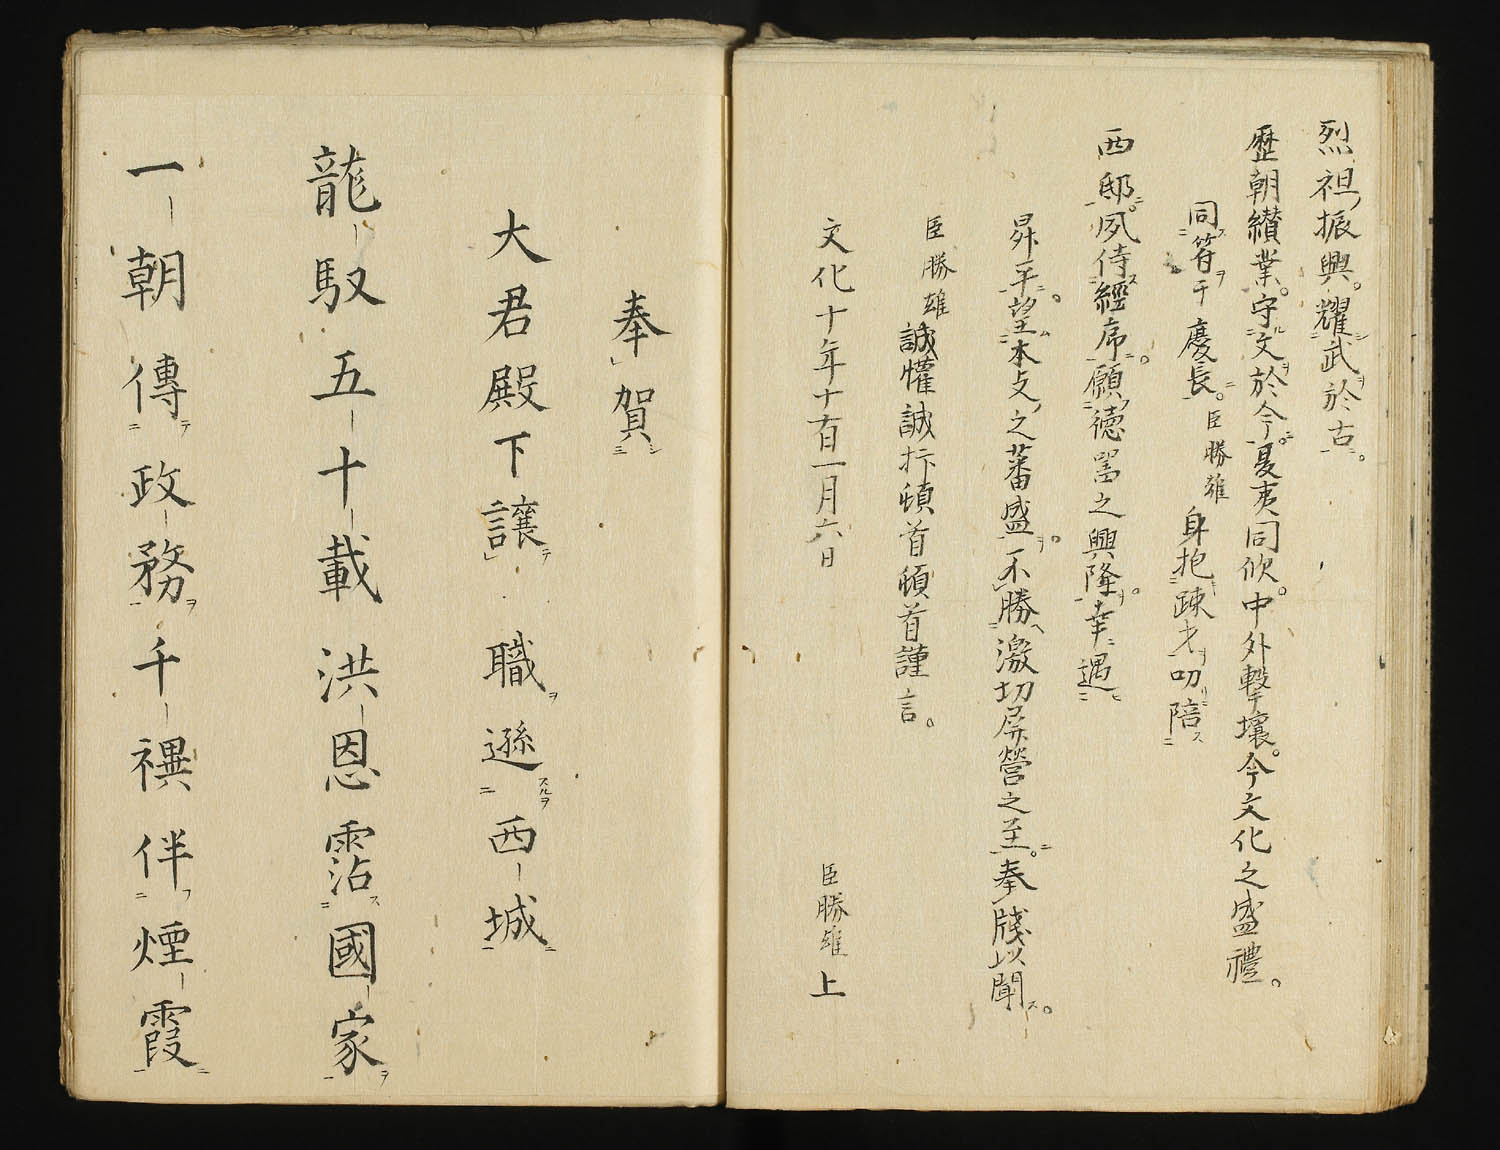 烈祖振興。耀武於古。
歴朝纉業。守文於今。夏夷同欣。中外撃壤。今文化之盛禮。
同符于慶長。臣勝雄身抱疎才叨陪
西邸。夙侍經席。願德器之興隆。幸遇
昇平。望本支之蕃盛。不勝激切屏營之至。奉牋以聞。
臣勝雄誠懽誠抃頓首頓首謹言。
文化十年十有一月六日
臣勝雄上
奉賀
大君殿下讓職遜西城
龍馭五十載洪恩霑國家
一朝傳政務千禩伴煙霞